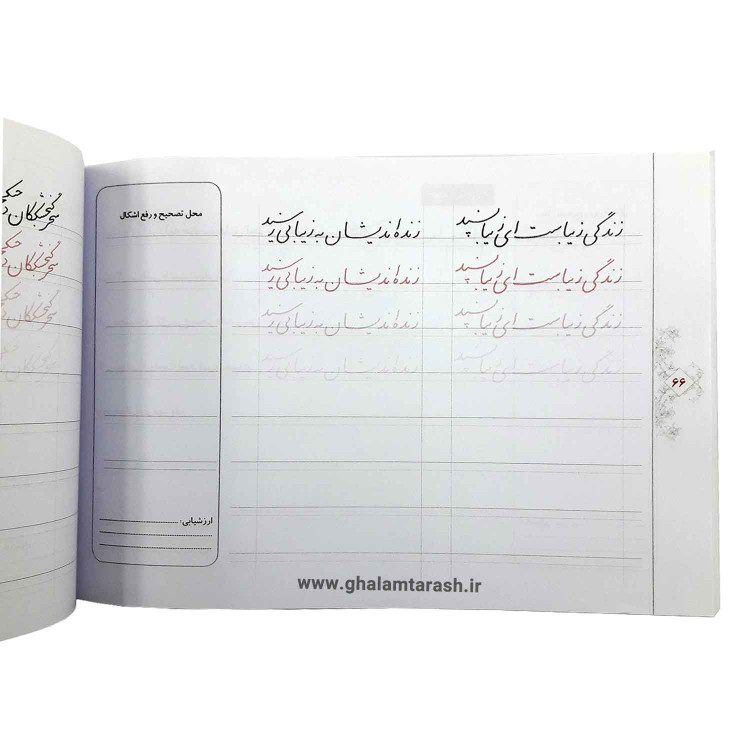 زندگی زیباست ای زیباپسند زنده اندیشان به زیبایی رسند
زندگی زیباست ای زیباپسند زنده اندیشان به زیبایی رسند
زندگی زیباست ای زیباپسند زنده اندیشان به زیبایی رسند
زندگی زیباست ای زیباپسند زنده اندیشان به زیبایی رسند
۶۶
محل تصحیح و رفع اشکال
ارزشیابی:
www.ghalamtarash.ir